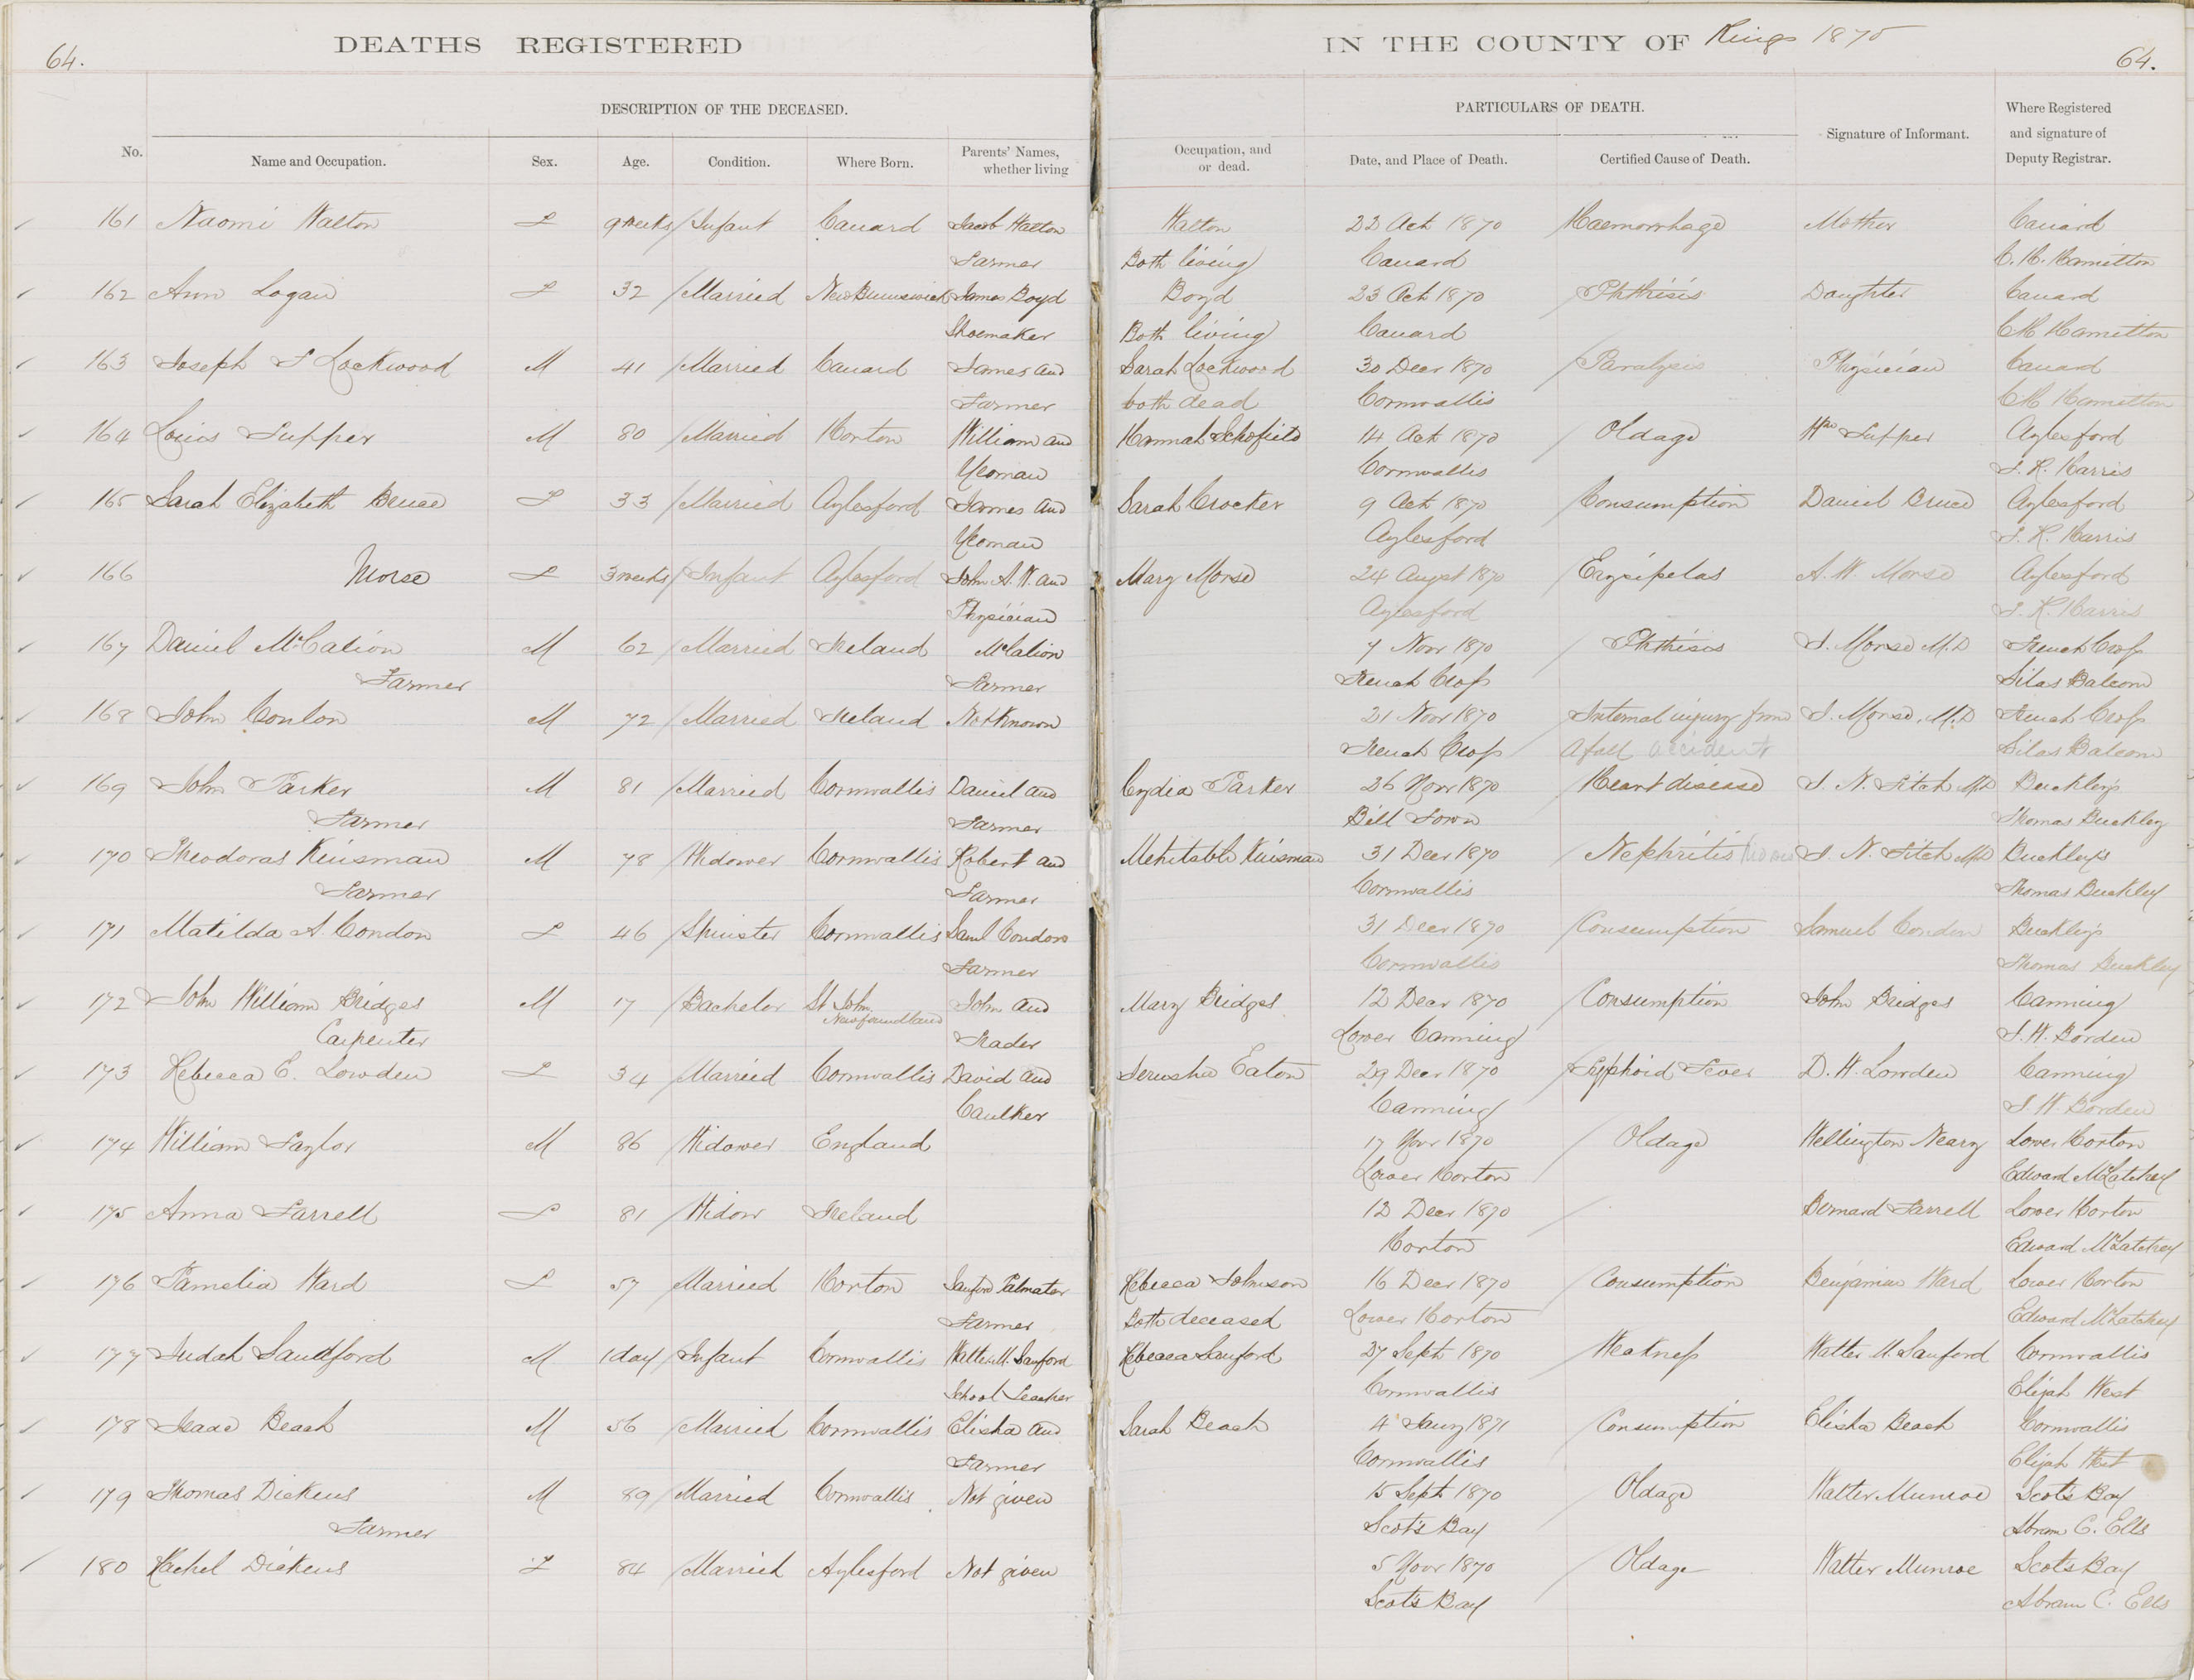 64.
DEATHS REGISTERED
IN THE COUNTY OF Kings 1870
64.
DESCRIPTION OF THE DECEASED.
PARTICULARS OF DEATH.
No. Name and Occupation. Sex. Age. Condition. Where Born. Parents' Names, whether living Occupation, and or dead. Date, and Place of Death. Certified Cause of Death. Signature of Informant. Where Registered and signature of Deputy Registrar.
161 Naomi Walton F 9 weeks Infant Canard Jacob Walton Walton 22 Oct 1870 Haemorrhage Mother Canard
Farmer Both living Canard C. H. Hamilton
162 Ann Logan F 32 Married New Brunswick James Boyd Boyd 23 Oct 1870 Phthisis Daughter Canard
Shoemaker Both living Canard C H Hamilton
163 Joseph F Lockwood M 41 Married Canard James and Sarah Lockwood 30 Decr 1870 Paralysis Physician Canard
Farmer both dead Cornwallis C H Hamilton
164 Louis Tupper M 80 Married Horton William and Hannah Schofield 14 Oct 1870 Oldage Tupper Aylesford
Yeoman Cornwallis Harris
165 Sarah Elizabeth Bruce F 33 Married Aylesford James and Sarah Crocker 9 Oct 1870 Consumption Daniel Bruce Aylesford
Yeoman Aylesford Harris
166 Morse F 3 weeks Infant Aylesford John A. W. and Mary Morse 24 Augst 1870 Erysipelas A. W. Morse Aylesford
Physician Aylesford Harris
167 Daniel McCalion M 62 Married Ireland McCalion 7 Novr 1870 Phthisis S. Morse M.D French Cross
Farmer Farmer French Cross Silas Balcom
168 John Conlon M 72 Married Ireland Not Known 21 Novr 1870 Internal injury from S. Morse, M.D French Cross
French Cross A fall accident Silas Balcom
169 John Parker M 81 Married Cornwallis Daniel and Lydia Parker 26 Novr 1870 Heart disease S. N. Fitch MD Buckley's
Farmer Farmer Bill Town Thomas Buckley
170 Theodoras Kinsman M 78 Widower Cornwallis Robert and Mehitable Kinsman 31 Decr 1870 Nephritis S. N. Fitch MD Buckley's
Farmer Farmer Cornwallis Thomas Buckley
171 Matilda A. Condon F 46 Spinster Cornwallis Saml Condon 31 Decr 1870 Consumption Samuel Condon Buckley's
Farmer Cornwallis Thomas Buckley
172 John William Bridges M 17 Bachelor St John Newfoundland John and Mary Bridges 12 Decr 1870 Consumption John Bridges Canning
Carpenter Trader Lower Canning J. W. Borden
173 Rebecca E. Lowden F 34 Married Cornwallis David and Jerusha Eaton 29 Decr 1870 Typhoid Fever D. W. Lowden Canning
Caulker Canning J. W. Borden
174 William Taylor M 86 Widower England 17 Novr 1870 Oldage Wellington Neary Lower Horton
Lower Horton Edward McLatchey
175 Anna Farrell F 81 Widow Ireland 12 Decr 1870 Bernard Farrell Lower Horton
Horton Edward McLatchey
176 Pamelia Ward F 57 Married Horton Sanford Palmater Rebecca Johnson 16 Decr 1870 Consumption Benjamin Ward Lower Horton
Farmer Both deceased Lower Horton Edward McLatchey
177 Judah Sandford M 1 day Infant Cornwallis Walter M. Sanford Rebecca Sanford 27 Sept 1870 Weakness Walter M. Sanford Cornwallis
School Teacher Cornwallis Elijah West
178 Isaac Beach M 56 Married Cornwallis Elisha and Sarah Beach 4 Jany 1871 Consumption Elisha Beach Cornwallis
Farmer Cornwallis Elijah West
179 Thomas Dickens M 89 Married Cornwallis Not given 15 Sept 1870 Oldage Walter Munroe Scots Bay
Farmer Scots Bay Abram C. Ells
180 Rachel Dickens F 84 Married Aylesford Not given 5 Novr 1870 Oldage Walter Munroe Scots Bay
Scots Bay Abram C. Ells